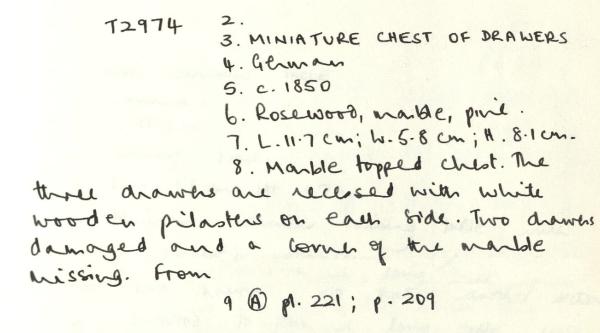 T2974 2.
3. MINIATURE CHEST OF DRAWERS
4. German
5. c. 1850
6. Rosewood, marble, pine.
7. L. 11.7 cm; W. 5.8 cm; H. 8.1 cm.
8. Marble topped chest. The
three drawers are recessed with white
wooden pilasters on each side. Two drawers
damaged and a corner of the marble
missing. From
9 (A) pl. 221; p. 209